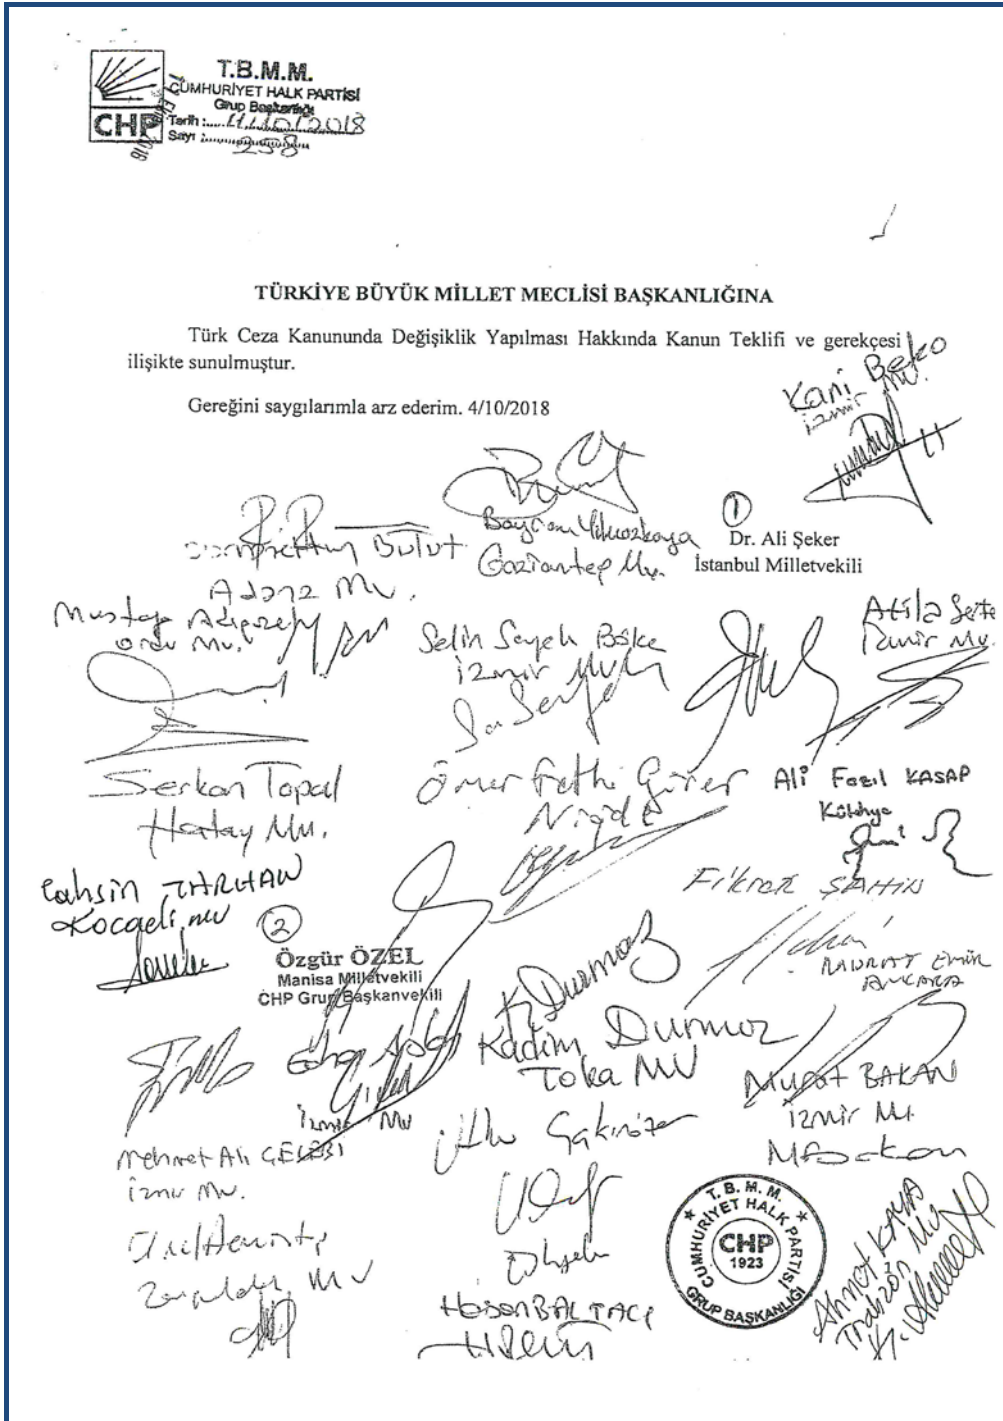 T.B.M.M.
CUMHURİYET HALK PARTİSİ
Grup Başkanlığı
CHP
Tarih : 11/10/2018
Sayı : 258
TÜRKİYE BÜYÜK MİLLET MECLİSİ BAŞKANLIĞINA
Türk Ceza Kanununda Değişiklik Yapılması Hakkında Kanun Teklifi ve gerekçesi
ilişikte sunulmuştur.
Gereğini saygılarımla arz ederim. 4/10/2018
Kani Beko
İzmir Mv.
1
Dr. Ali Şeker
İstanbul Milletvekili
Bayram Yılmazkaya
Gaziantep Mv.
Bulut
Adana Mv.
Mustafa Adıgüzel
Ordu Mv.
Selin Sayek Böke
İzmir Mv
Atila Sertel
İzmir Mv.
Serkan Topal
Hatay Mv.
Ömer Fethi Gürer
Niğde
Ali Fazıl KASAP
Kütahya
Tahsin TARHAN
Kocaeli mv
Fikret ŞAHİN
2
Özgür ÖZEL
Manisa Milletvekili
CHP Grup Başkanvekili
MURAT EMİR
ANKARA
K. Durmaz
Kadim Durmaz
Tokat MV
İzmir Mv
Murat BAKAN
İzmir Mv.
MBakan
Mehmet Ali ÇELEBİ
İzmir Mv.
Utku Çakırözer
Zonguldak Mv
Hasan BALTACI
T. B. M. M.
CUMHURİYET HALK PARTİSİ
CHP
1923
GRUP BAŞKANLIĞI
Ahmet KAYA
Trabzon Mv